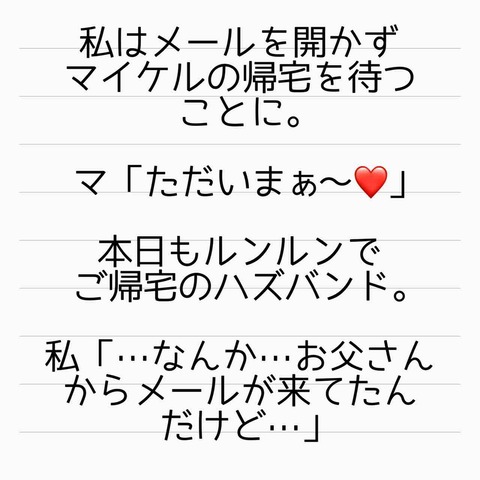 私はメールを開かず
マイケルの帰宅を待つ
ことに。
マ「ただいまぁ〜❤️」
本日もルンルンで
ご帰宅のハズバンド。
私「…なんか…お父さん
からメールが来てたん
だけど…」